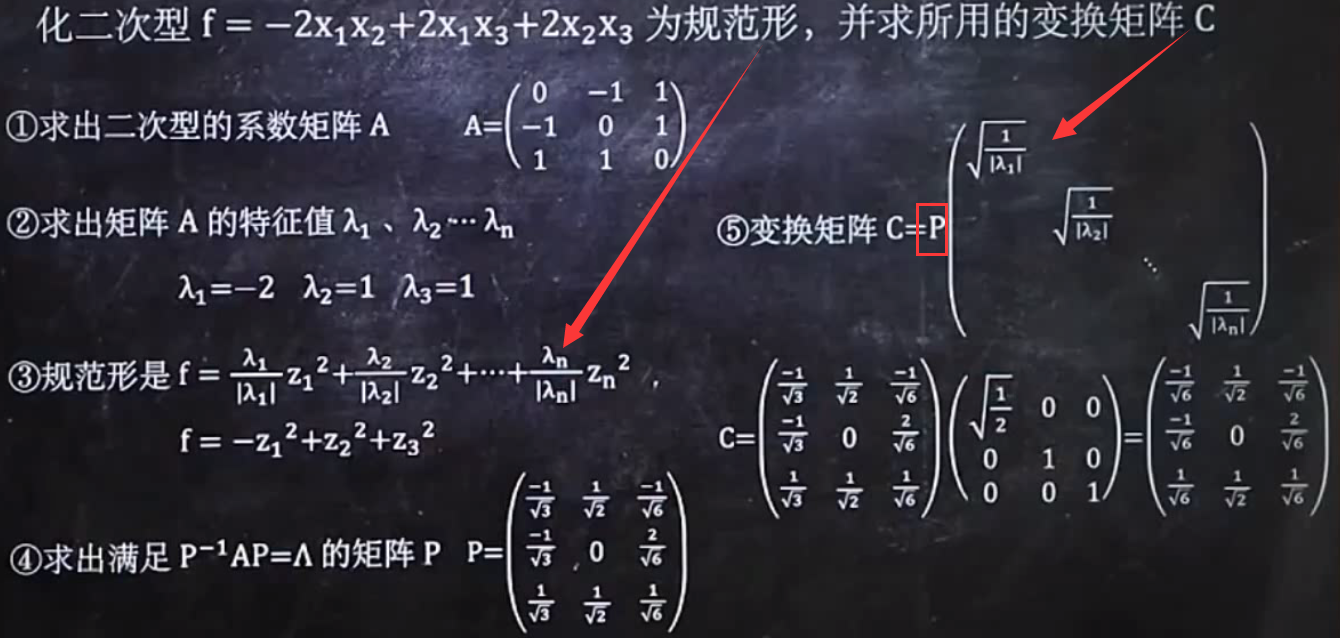 化二次型 f = −2x₁x₂+2x₁x₃+2x₂x₃ 为规范形，并求所用的变换矩阵 C
①求出二次型的系数矩阵 A A=
0 −1 1
−1 0 1
1 1 0
②求出矩阵 A 的特征值 λ₁ 、λ₂ ⋯ λₙ
λ₁=−2 λ₂=1 λ₃=1
③规范形是 f = λ₁/|λ₁| z₁²+λ₂/|λ₂| z₂²+⋯+λₙ/|λₙ| zₙ² ，
f = −z₁²+z₂²+z₃²
④求出满足 P⁻¹AP=Λ 的矩阵 P P=
−1/√3 1/√2 −1/√6
−1/√3 0 2/√6
1/√3 1/√2 1/√6
⑤变换矩阵 C=P
√(1/|λ₁|)
√(1/|λ₂|)
⋱
√(1/|λₙ|)
C=
−1/√3 1/√2 −1/√6
−1/√3 0 2/√6
1/√3 1/√2 1/√6
√(1/2) 0 0
0 1 0
0 0 1
=
−1/√6 1/√2 −1/√6
−1/√6 0 2/√6
1/√6 1/√2 1/√6